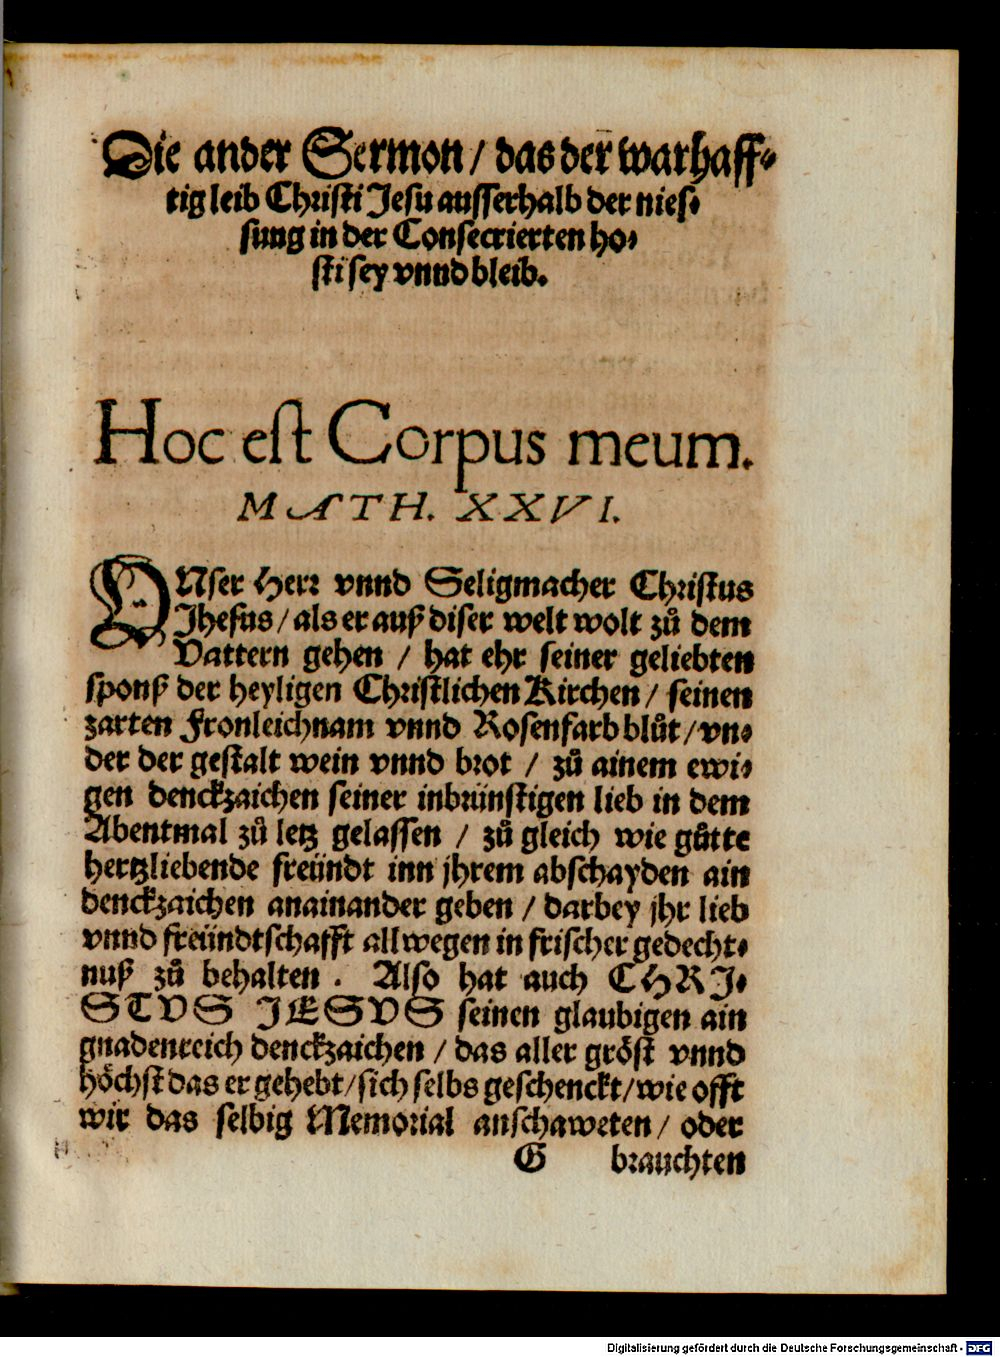 Die ander Sermon / das der warhaff⸗
tig leib Christi Jesu ausserhalb der nies⸗
sung in der Consecrierten ho⸗
sti sey vnnd bleib.
Hoc est Corpus meum.
MATH. XXVI.
VNser Herr vnnd Seligmacher Christus
Jhesus / als er auß diser welt wolt zů dem
Vattern gehen / hat ehr seiner geliebten
sponß der heyligen Christlichen Kirchen / seinen
zarten Fronleichnam vnnd Rosenfarb blůt / vn⸗
der der gestalt wein vnnd brot / zů ainem ewi⸗
gen denckzaichen seiner inbrünstigen lieb in dem
Abentmal zů letz gelassen / zů gleich wie gůtte
hertzliebende freündt inn jhrem abschayden ain
denckzaichen anainander geben / darbey jhr lieb
vnnd freündtschafft allwegen in frischer gedecht⸗
nuß zů behalten . Also hat auch CHRJ⸗
STVS JESVS seinen glaubigen ain
gnadenreich denckzaichen / das aller gröst vnnd
höchst das er gehebt / sich selbs geschenckt / wie offt
wir das selbig Memorial anschaweten / oder
G brauchten
Digitalisierung gefördert durch die Deutsche Forschungsgemeinschaft - DFG